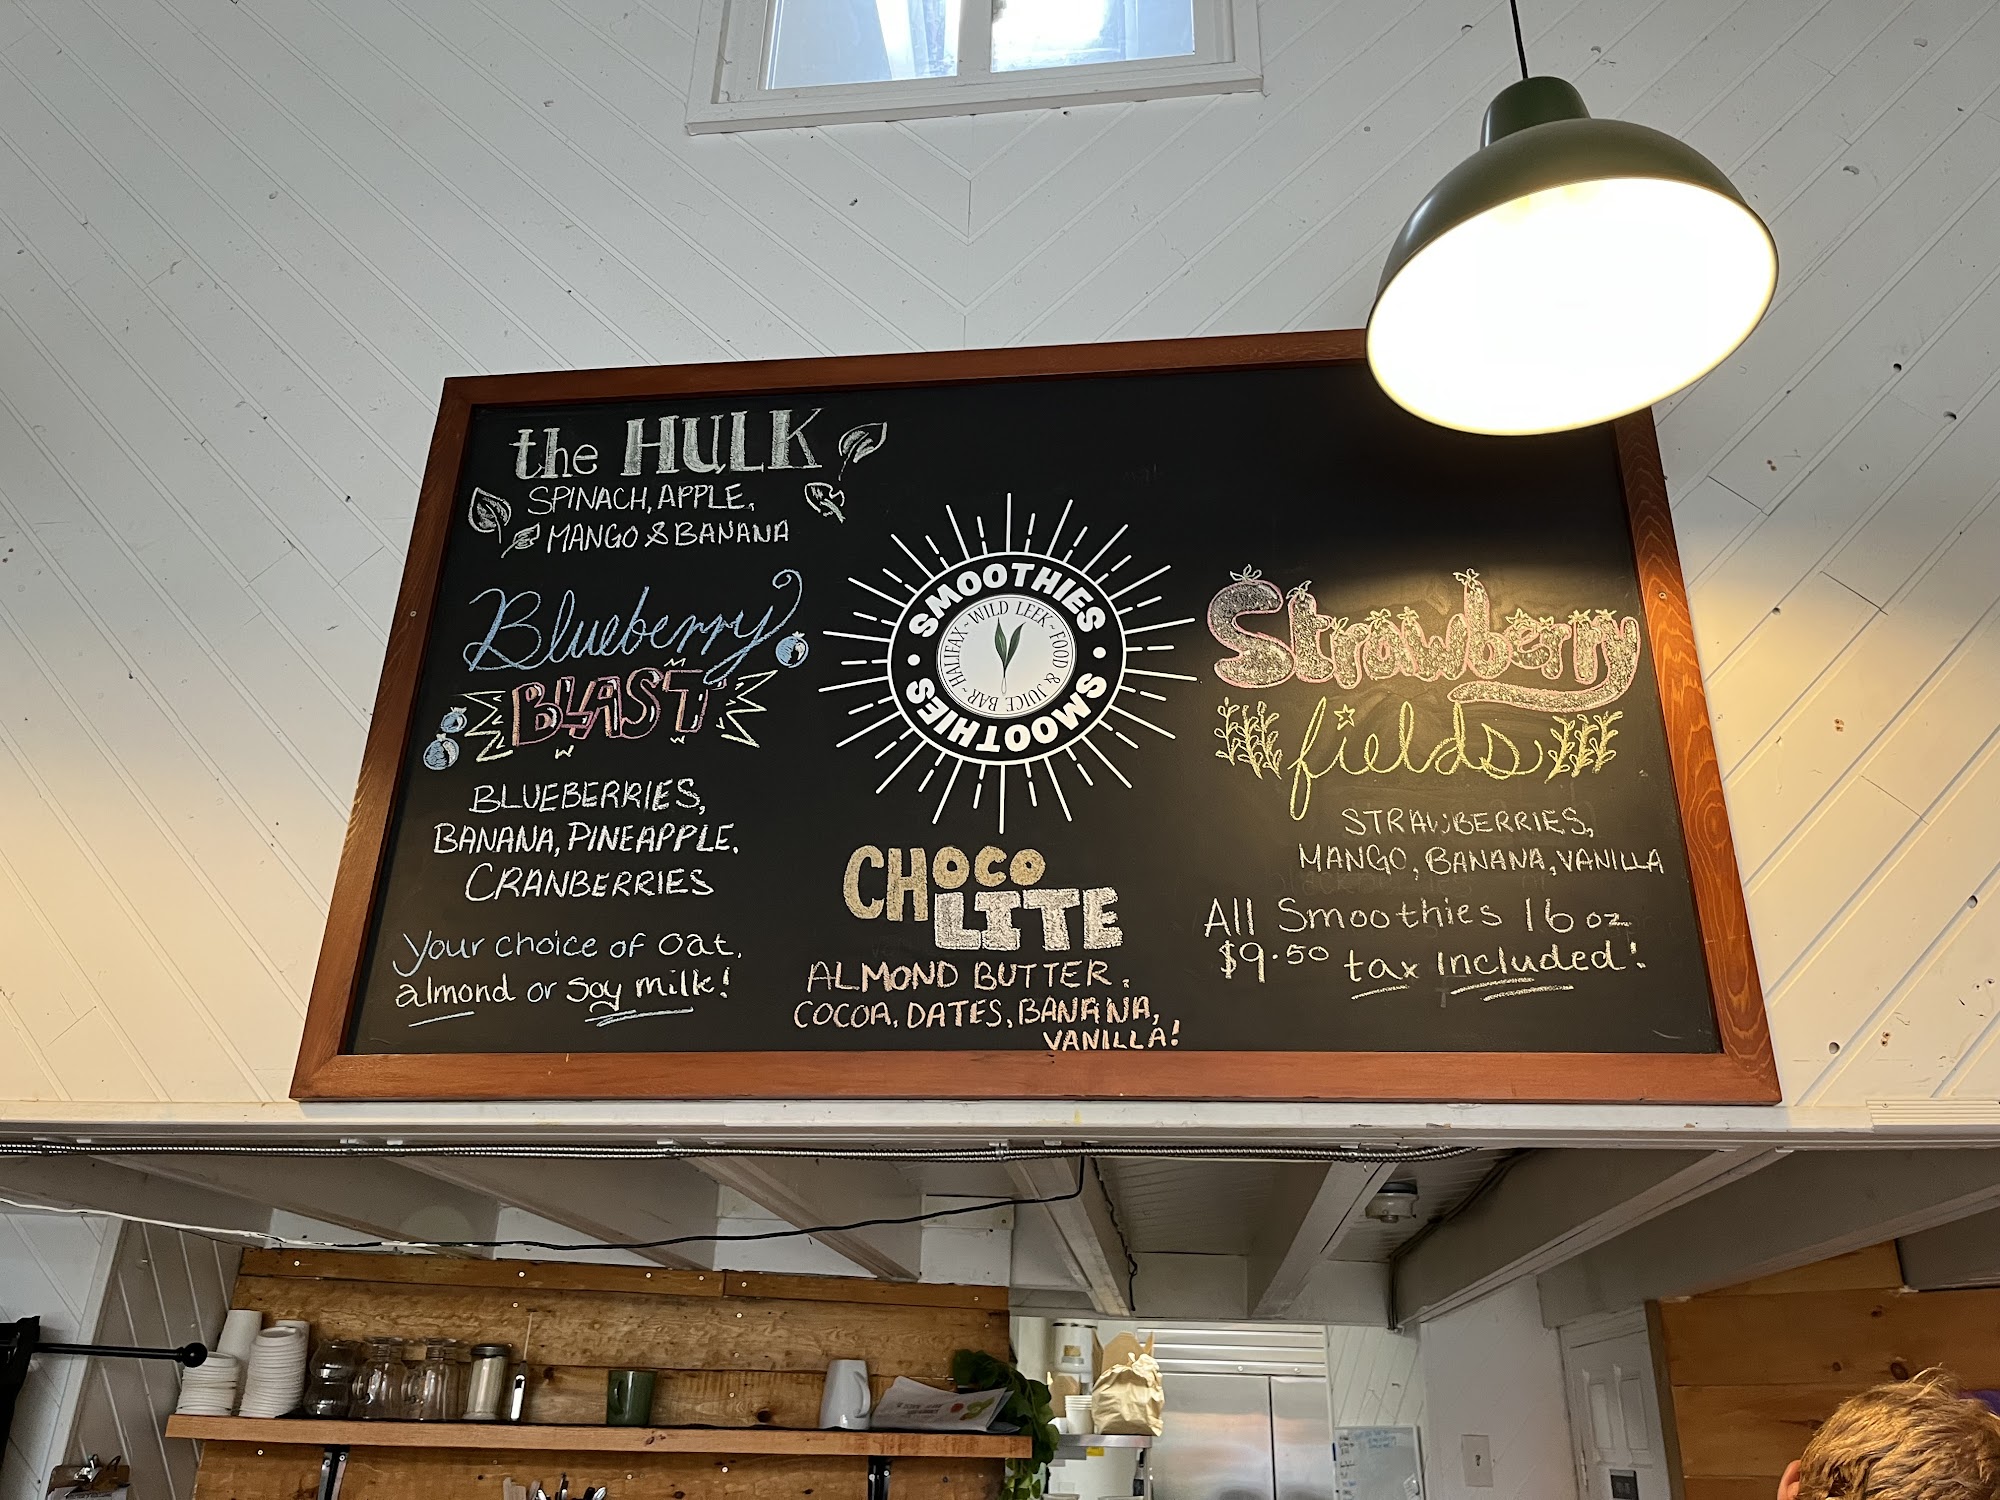 the HULK
SPINACH, APPLE,
MANGO & BANANA
Blueberry
BLAST
BLUEBERRIES,
BANANA, PINEAPPLE,
CRANBERRIES
your choice of oat,
almond or soy milk!
SMOOTHIES • SMOOTHIES •
HALIFAX ~ WILD LEEK ~ FOOD & JUICE BAR ~
CHOCO
LITE
ALMOND BUTTER,
COCOA, DATES, BANANA,
VANILLA!
Strawberry
fields
STRAWBERRIES,
MANGO, BANANA, VANILLA
All Smoothies 16 oz
$9.50 tax included!